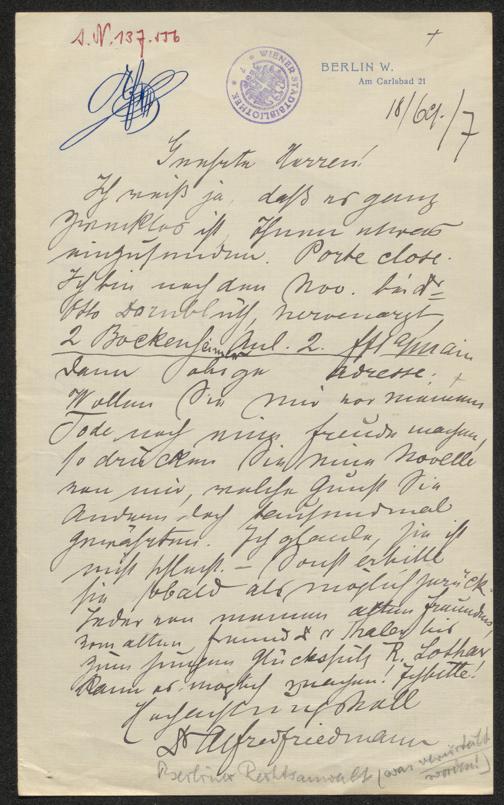 J.N. 137.556
WIENER STADTBIBLIOTHEK
BERLIN W.
Am Carlsbad 21
Geehrte Herren!
Ich weiß ja, daß es ganz
zwecklos ist, Ihnen etwas
einzusenden. Porte close.
Ich bin noch den Nov. bei Dr
Otto Dornblüth, Nervenarzt
2 Bockenheimer Anl. 2. Ff/a/main
dann obige Adresse.
Wollen Sie mir vor meinem
Tode noch eine Freude machen,
so drucken Sie eine Novelle
von mir, welche Gunst Sie
Andern doch tausendmal
gewährten. Ich glaube, sie ist
nicht schlecht. – Sonst erbitte
sie sobald als möglich zurück.
Jeder von meinen alten Freunden,
vom alten Freund Thaler bis
zum jungen Glückspilz R. Lothar
kann es möglich machen! Ich bitte!
Hochachtungsvoll
Dr Alfred Friedmann
Berliner Rechtsanwalt (was verurteilt
worden!)